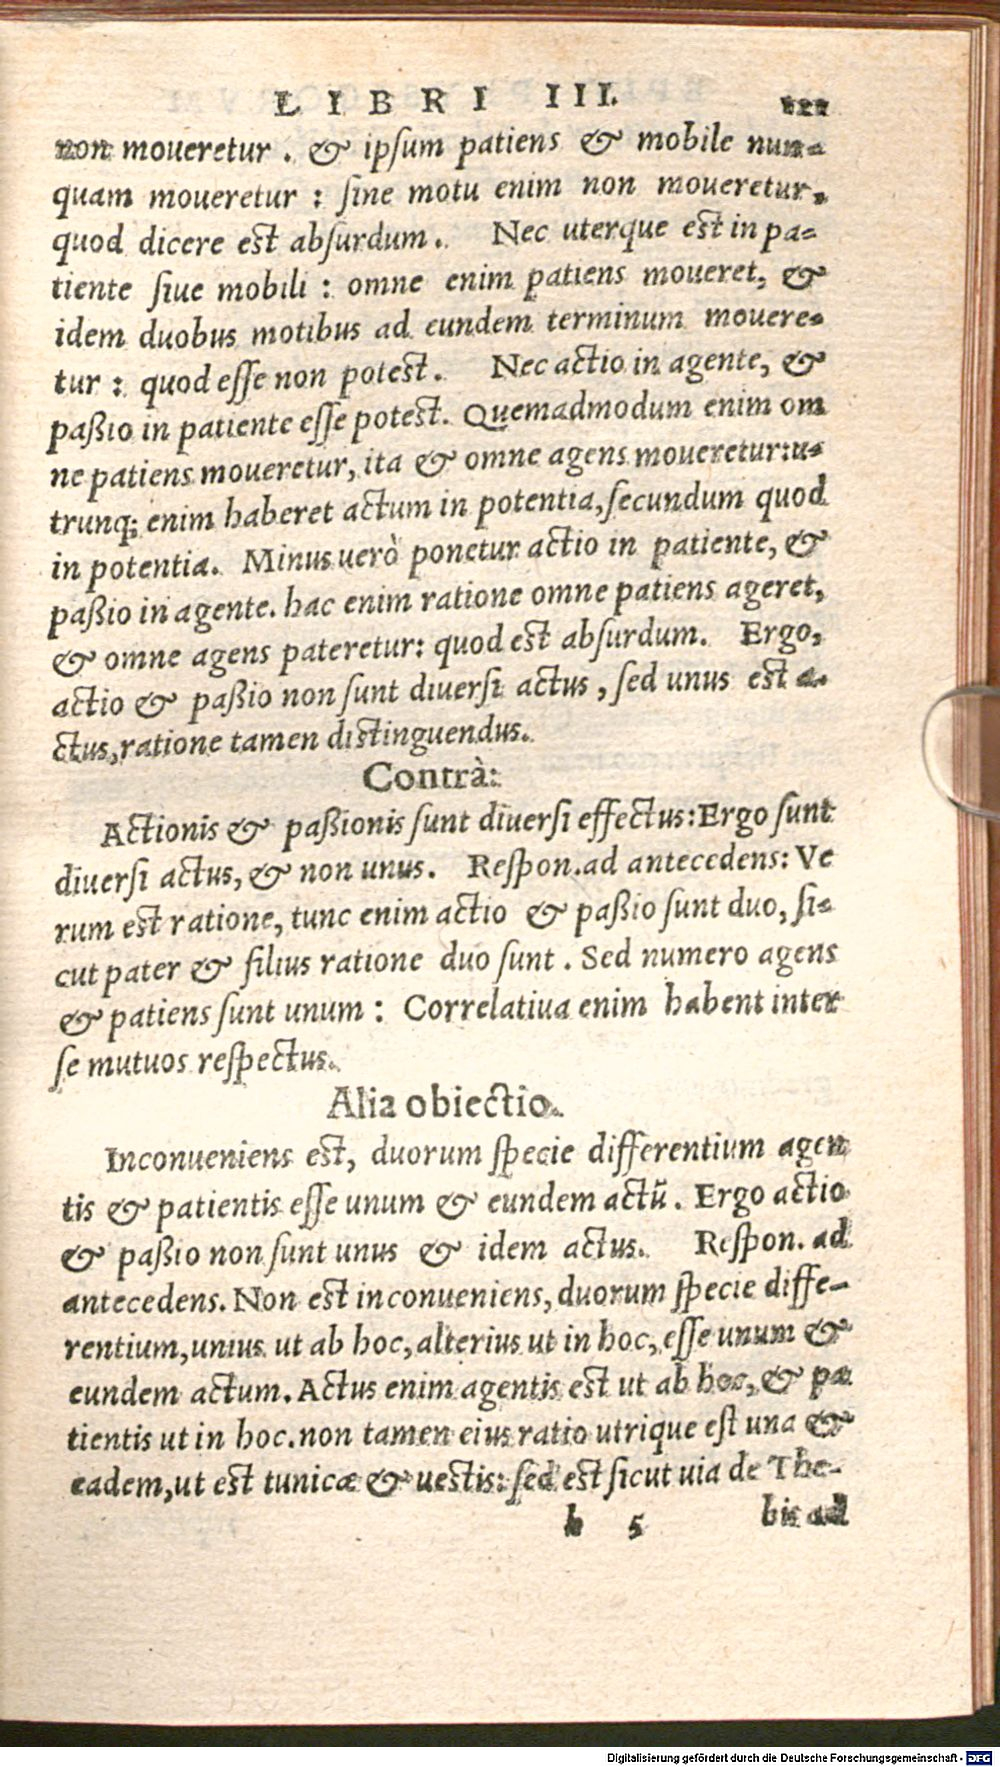 LIBRI III. 121
non moueretur. & ipſum patiens & mobile nun-
quam moueretur : ſine motu enim non moueretur,
quod dicere est abſurdum. Nec uterque est in pa-
tiente ſiue mobili : omne enim patiens moueret, &
idem duobus motibus ad eundem terminum mouere-
tur : quod eſſe non potest. Nec actio in agente, &
paßio in patiente eſſe potest. Quemadmodum enim om
ne patiens moueretur, ita & omne agens moueretur: u-
trunq; enim haberet actum in potentia, ſecundum quod
in potentia. Minus uerò ponetur actio in patiente, &
paßio in agente. hac enim ratione omne patiens ageret,
& omne agens pateretur: quod est abſurdum. Ergo,
actio & paßio non ſunt diuerſi actus, ſed unus est a-
ctus, ratione tamen distinguendus.
Contrà:
Actionis & paßionis ſunt diuerſi effectus: Ergo ſunt
diuerſi actus, & non unus. Reſpon. ad antecedens: Ve
rum est ratione, tunc enim actio & paßio ſunt duo, ſi-
cut pater & filius ratione duo ſunt. Sed numero agens
& patiens ſunt unum : Correlatiua enim habent inter
ſe mutuos reſpectus.
Alia obiectio.
Inconueniens est, duorum ſpecie differentium agen
tis & patientis eſſe unum & eundem actū. Ergo actio
& paßio non ſunt unus & idem actus. Reſpon. ad
antecedens. Non est inconueniens, duorum ſpecie diffe-
rentium, unius ut ab hoc, alterius ut in hoc, eſſe unum &
eundem actum. Actus enim agentis est ut ab hoc, & pa
tientis ut in hoc. non tamen eius ratio utrique eſt una &
eadem, ut est tunicæ & uestis: ſed est ſicut uia de The-
b 5 bis ad
Digitalisierung gefördert durch die Deutsche Forschungsgemeinschaft - DFG